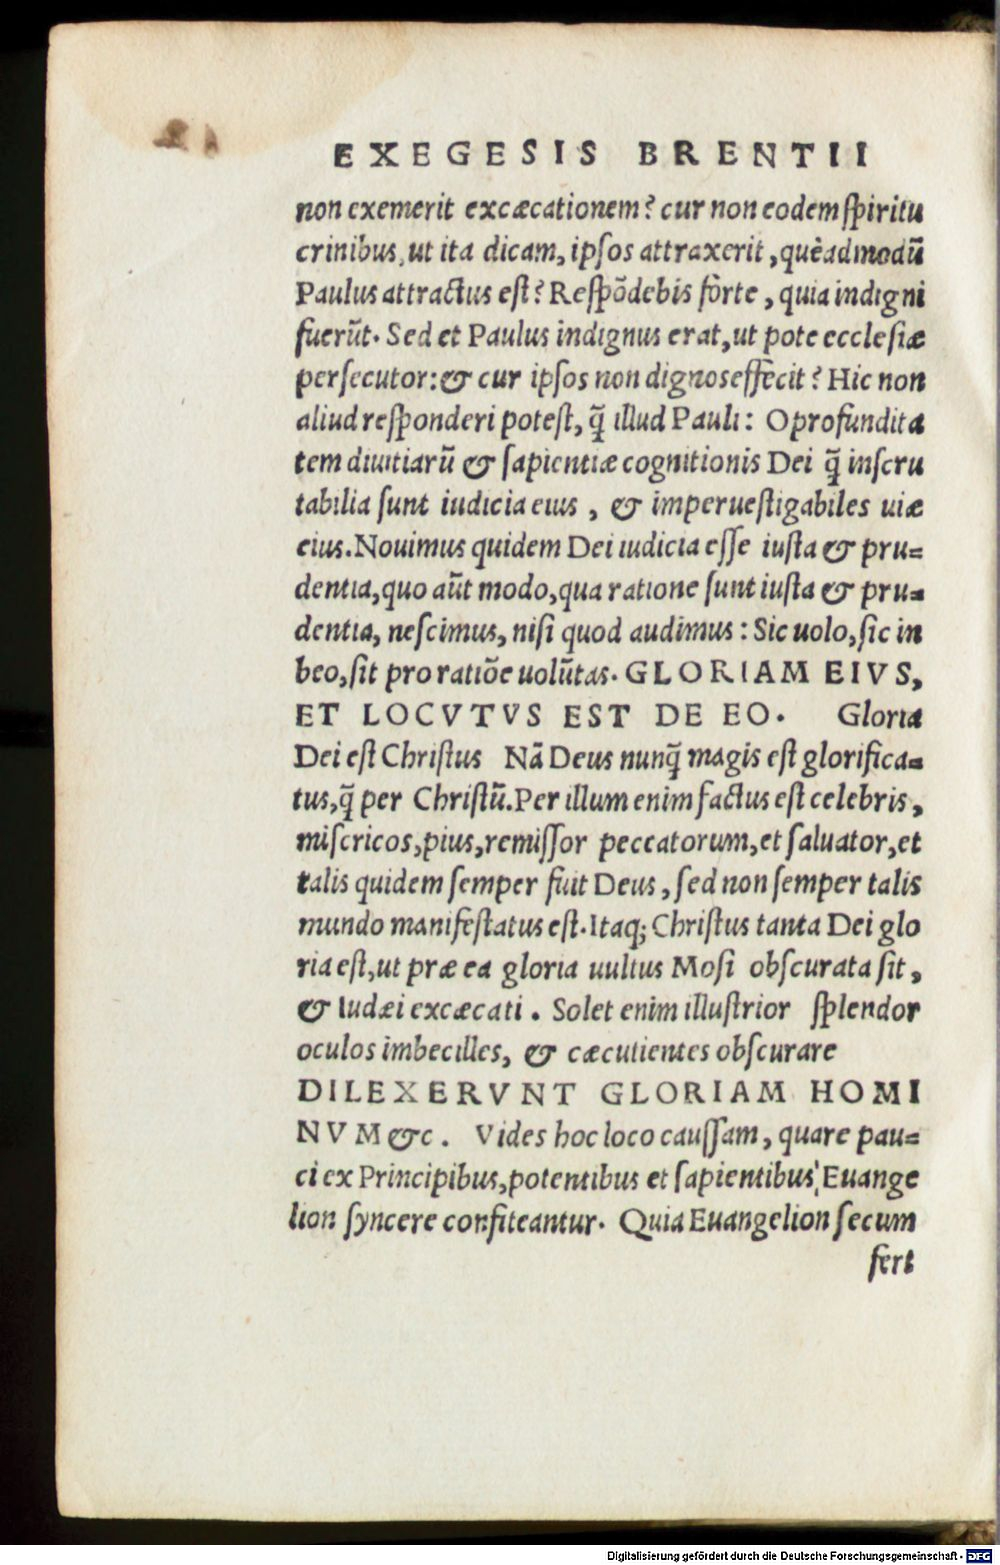 EXEGESIS BRENTII
non exemerit excæcationem? cur non eodem ſpiritu
crinibus, ut ita dicam, ipſos attraxerit, quẽadmodũ
Paulus attractus eſt? Reſpõdebis forte, quia indigni
fuerũt. Sed et Paulus indignus erat, ut pote eccleſiæ
perſecutor: & cur ipſos non dignos effecit? Hic non
aliud reſponderi poteſt, q̃ illud Pauli: O profundita
tem diuitiarũ & ſapientiæ cognitionis Dei q̃ inſcru
tabilia ſunt iudicia eius, & imperueſtigabiles uiæ
eius. Nouimus quidem Dei iudicia eſſe iuſta & pru=
dentia, quo aũt modo, qua ratione ſunt iuſta & pru=
dentia, neſcimus, niſi quod audimus: Sic uolo, ſic iu
beo, ſit pro ratiõe uolũtas. GLORIAM EIVS,
ET LOCVTVS EST DE EO. Gloria
Dei eſt Chriſtus Nã Deus nunq̃ magis eſt glorifica=
tus, q̃ per Chriſtũ. Per illum enim factus eſt celebris,
miſericos, pius, remiſſor peccatorum, et ſaluator, et
talis quidem ſemper fuit Deus, ſed non ſemper talis
mundo manifeſtatus eſt. Itaq; Chriſtus tanta Dei glo
ria eſt, ut præ ea gloria uultus Moſi obſcurata ſit,
& Iudæi excæcati. Solet enim illuſtrior ſplendor
oculos imbecilles, & cæcutientes obſcurare
DILEXERVNT GLORIAM HOMI
NVM &c. Vides hoc loco cauſſam, quare pau=
ci ex Principibus, potentibus et ſapientibus, Euange
lion ſyncere confiteantur. Quia Euangelion ſecum
fert
Digitalisierung gefördert durch die Deutsche Forschungsgemeinschaft - DFG